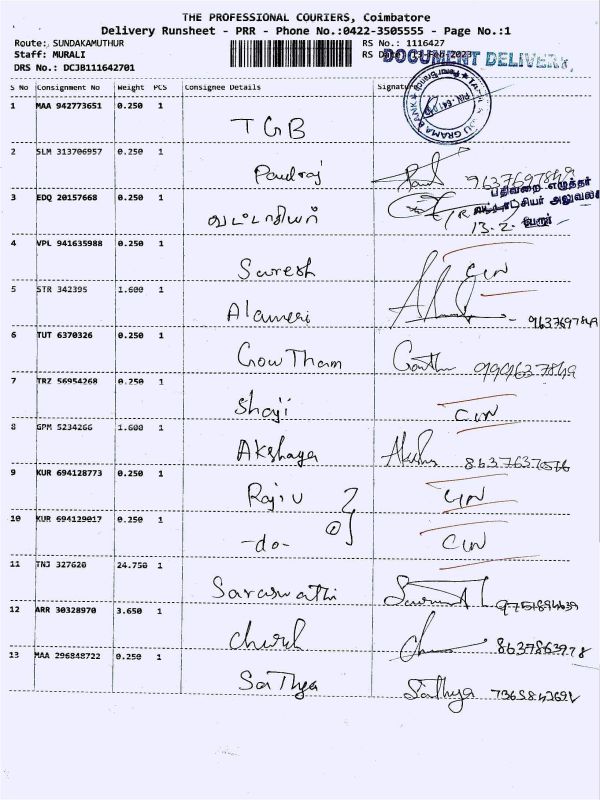 THE PROFESSIONAL COURIERS, Coimbatore
Delivery Runsheet - PRR - Phone No.:0422-3505555 - Page No.:1
Route: SUNDAKAMUTHUR RS No.: 1116427
Staff: MURALI RS Date: 13-Feb-2023
DOCUMENT DELIVERY,
DRS No.: DCJB111642701
S No Consignment No Weight PCS Consignee Details Signature
GRAMA BANK
1 MAA 942773651 0.250 1 TGB
2 SLM 313706957 0.250 1 Paulraj 9637697849
3 EDQ 20157668 0.250 1 வட்டாதியர்
பதிவறை எழுத்தர்
13.2.
4 VPL 941635988 0.250 1 Suresh CLN
5 STR 342395 1.600 1 Alameri 9637697849
6 TUT 6370326 0.250 1 GowTham Gowtham
7 TRZ 56954268 0.250 1 Shaji CLN
8 GPM 5234266 1.600 1 Akshaya 8637637076
9 KUR 694128773 0.250 1 Rajiv CLN
10 KUR 694129017 0.250 1 -do- CLN
11 TNJ 327620 24.750 1 Saraswathi
12 ARR 30328970 3.650 1 Church 8637863978
13 MAA 296848722 0.250 1 SaThya Sathya